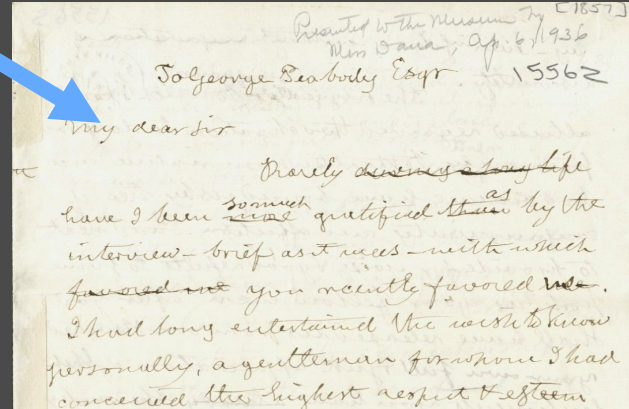 [1857]
Presented to the Museum by
Miss Dana, Ap. 6, 1936
15562
To George Peabody Esqr
My dear Sir
Rarely during a long life
have I been more so much gratified than as by the
interview – brief as it was – with which
favored me you recently favored me.
I had long entertained the wish to know
personally, a gentleman for whom I had
conceived the highest respect & esteem